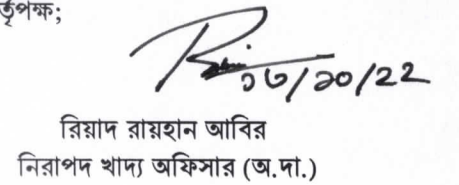 র্তৃপক্ষ;
১৩/১০/২২
রিয়াদ রায়হান আবির
নিরাপদ খাদ্য অফিসার (অ.দা.)